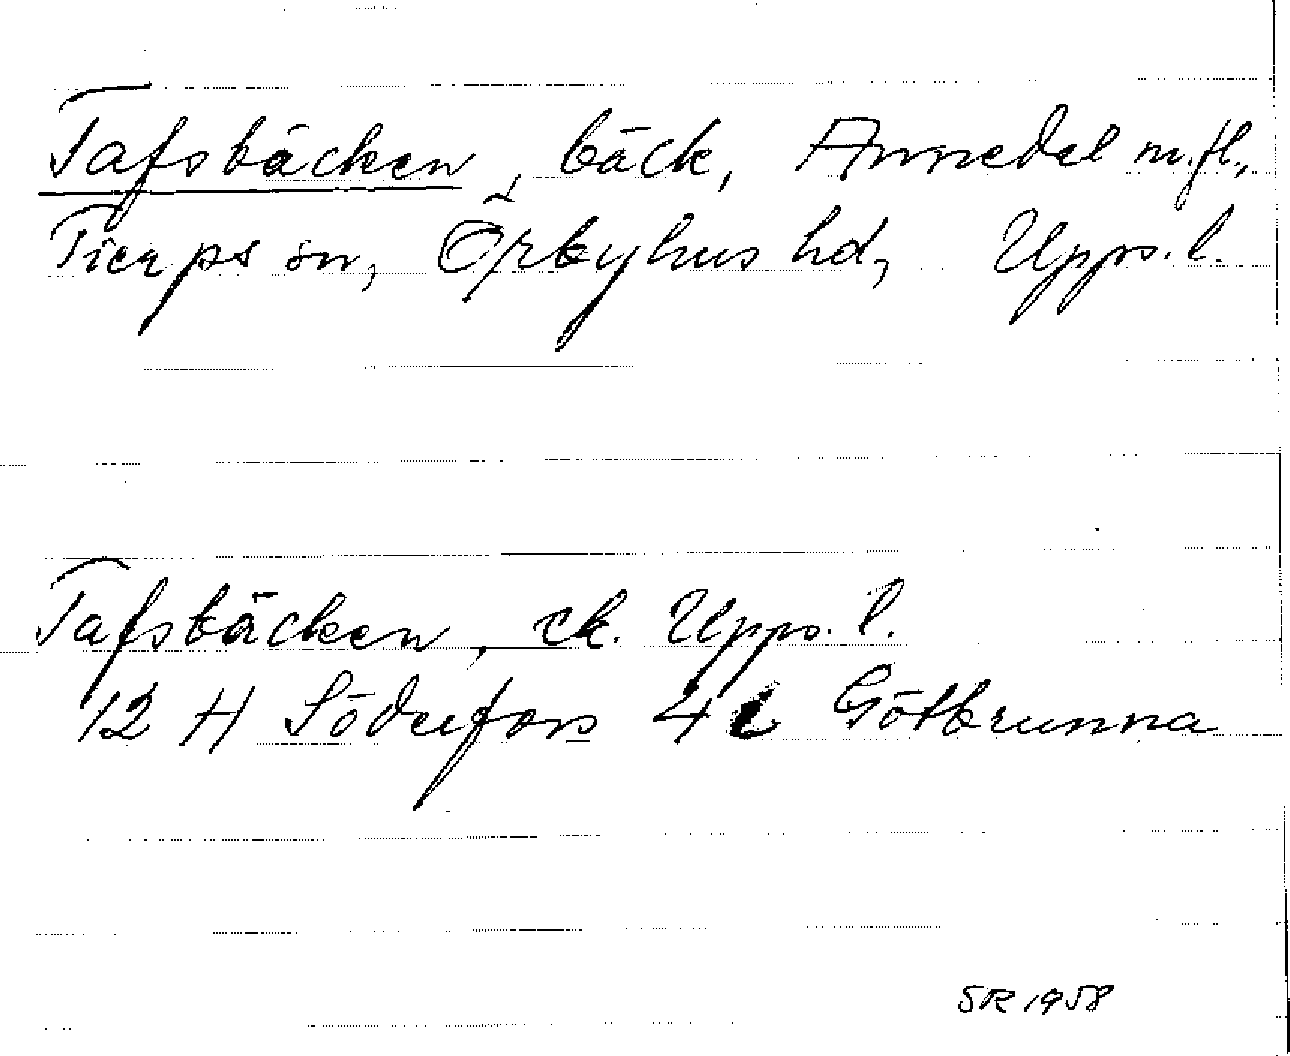 Tafsbäcken, bäck, Annedal m.fl.,
Tierps sn, Örbyhus hd, Upps. l.
Tafsbäcken, ek. Upps. l.
12 H Söderfors 4 c Götbrunna
SR 1958